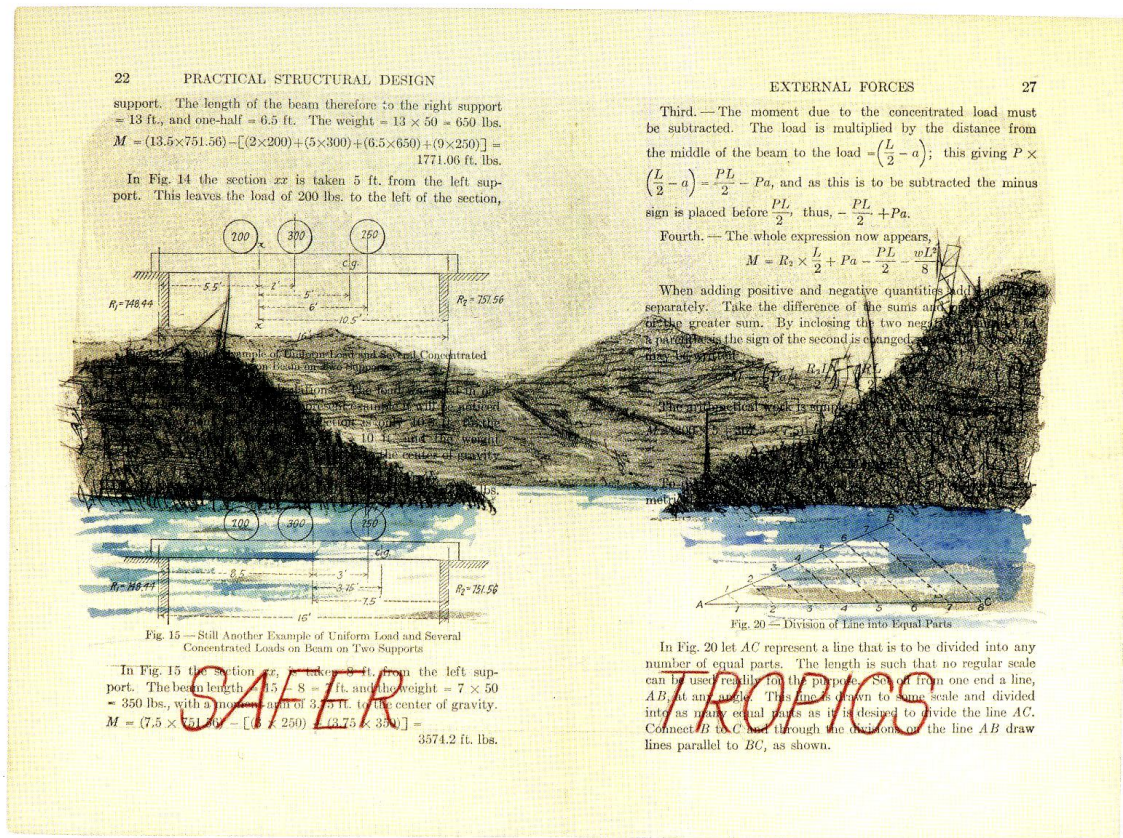 22 PRACTICAL STRUCTURAL DESIGN
support. The length of the beam therefore to the right support
= 13 ft., and one-half = 6.5 ft. The weight = 13 × 50 = 650 lbs.
M = (13.5×751.56) − [(2×200)+(5×300)+(6.5×650)+(9×250)] =
1771.06 ft. lbs.
In Fig. 14 the section xx is taken 5 ft. from the left sup-
port. This leaves the load of 200 lbs. to the left of the section,
200 300 250
x
c.g.
5.5' 2'
R₁=748.44 R₂=751.56
5'
6'
10.5'
x
16'
Example of Uniform Load and Several Concentrated
Beam on Two
noticed
10 ft. and the weight
the center of gravity
lbs.
200 300 250
c.g.
8.5 3'
R₁=748.44 3.75' R₂=751.56
7.5'
16'
Fig. 15 — Still Another Example of Uniform Load and Several
Concentrated Loads on Beam on Two Supports
In Fig. 15 the section xx, is taken 8 ft. from the left sup-
port. The beam length = 15 − 8 = 7 ft. and the weight = 7 × 50
= 350 lbs., with a moment arm of 3.75 ft. to the center of gravity.
M = (7.5 × 751.56) − [(3 × 250) + (3.75 × 350)] =
3574.2 ft. lbs.
SAFER
EXTERNAL FORCES 27
Third. — The moment due to the concentrated load must
be subtracted. The load is multiplied by the distance from
the middle of the beam to the load = (L/2 − a); this giving P ×
(L/2 − a) = PL/2 − Pa, and as this is to be subtracted the minus
sign is placed before PL/2, thus, − PL/2 + Pa.
Fourth. — The whole expression now appears,
M = R₂ × L/2 + Pa − PL/2 − wL²/8
When adding positive and negative quantities add
separately. Take the difference of the sums and
of the greater sum. By inclosing the two
a parenthesis the sign of the second is changed,
may be
The
work is
B
1 2 3 4 5 6 7
A 1 2 3 4 5 6 7 8 C
Fig. 20 — Division of Line into Equal Parts
In Fig. 20 let AC represent a line that is to be divided into any
number of equal parts. The length is such that no regular scale
can be used readily for the purpose. Set off from one end a line,
AB, at any angle. This line is drawn to some scale and divided
into as many equal parts as it is desired to divide the line AC.
Connect B to C and through the divisions on the line AB draw
lines parallel to BC, as shown.
TROPICS